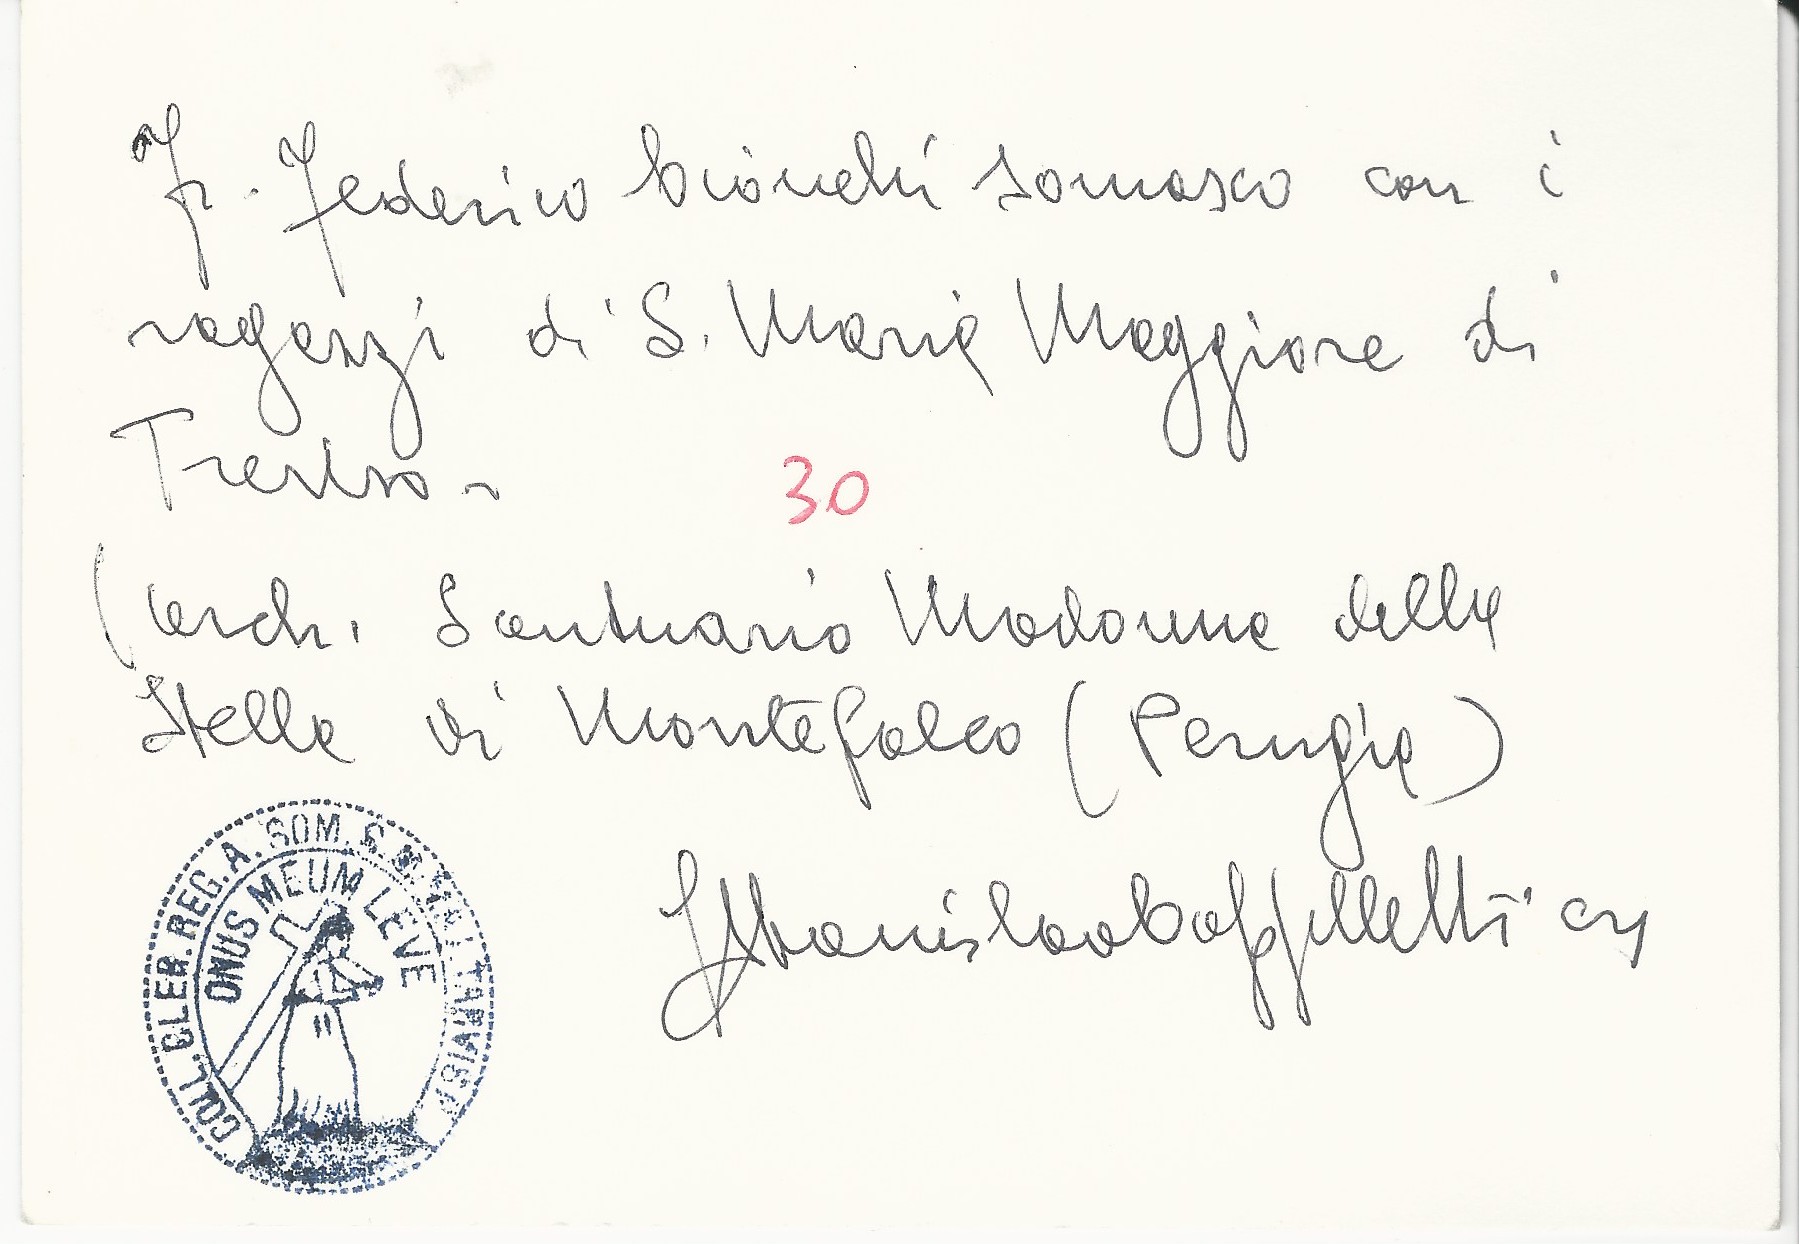 Fr. Federico Cionchi somasco con i
ragazzi di S. Maria Maggiore di
Treviso -
30
(arch. Santuario Madonna della
Stella di Montefalco (Perugia)
Stanislao Cappelletti crs
COLL. CLER. REG. A. SOM. S. M. M. TARVISII
ONUS MEUM LEVE